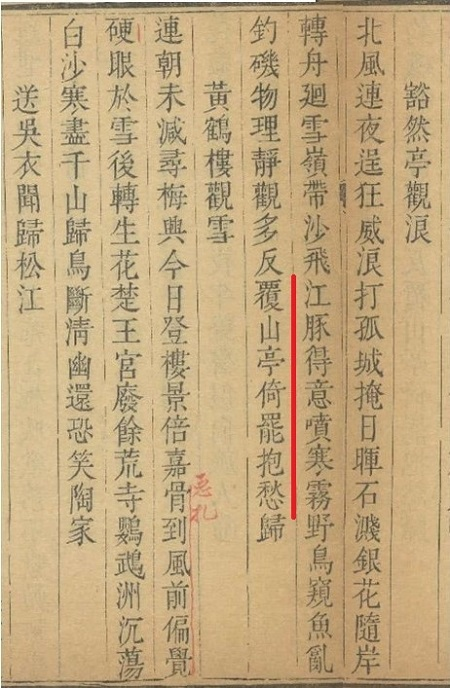 豁然亭觀浪
北風連夜逞狂威浪打孤城掩日暉石濺銀花隨岸
轉舟廻雪嶺帶沙飛江豚得意噴寒霧野鳥窺魚亂
釣磯物理靜觀多反覆山亭倚罷抱愁歸
黃鶴樓觀雪
連朝未減尋梅興今日登樓景倍嘉骨到風前偏覺
硬眼於雪後轉生花楚王宮廢餘荒寺鸚鵡洲沉蕩
白沙寒盡千山歸鳥斷清幽還恐笑陶家
送吳衣聞歸松江